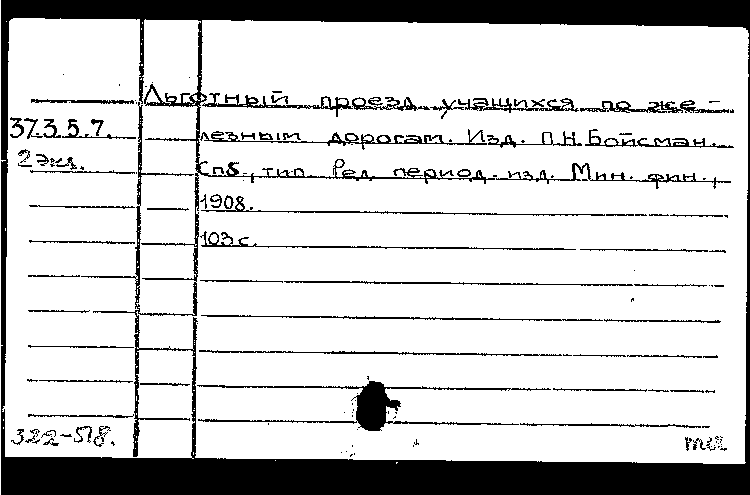 Льготный проезд учащихся по же-
37.3.5.7. лезным дорогам. Изд. П.Н.Бойсман.
2 экз. Спб., тип. Ред. период. изд. Мин. фин.,
1908.
103 с.
322-518.